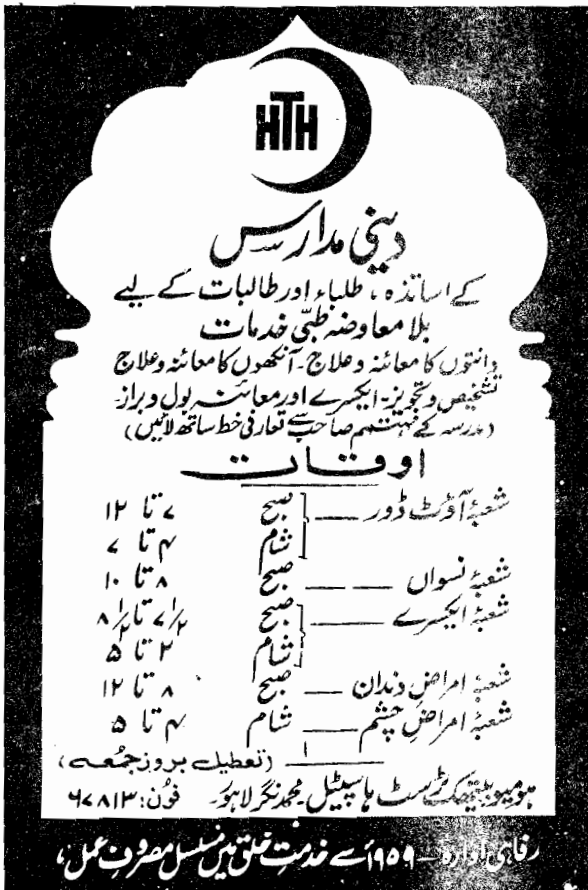 HTH
دینی مدارس
کے اساتذہ، طلباء اور طالبات کے لیے
بلا معاوضہ طبّی خدمات
دانتوں کا معائنہ و علاج ۔ آنکھوں کا معائنہ و علاج
تشخیص و تجویز ۔ ایکسرے اور معائنہ بول و براز ۔
(مدرسہ کے مہتمم صاحب سے تعارفی خط ساتھ لائیں)
اوقات
شعبۂ آؤٹ ڈور ــــ صبح ۷ تا ۱۲
شام ۴ تا ۷
شعبۂ نسواں ــــ صبح ۸ تا ۱۰
شعبۂ ایکسرے ــــ صبح ۷½ تا ۸½
شام ۲ تا ۵
شعبۂ امراضِ دندان ــ صبح ۸ تا ۱۲
شعبۂ امراضِ چشم ــــ شام ۴ تا ۵
(تعطیل بروز جمعہ)
ہومیوپیتھک ٹرسٹ ہاسپیٹل محمد نگر لاہور۔ فون: ۶۷۸۱۳
رفاہی ادارہ ــ ۱۹۵۹ء سے خدمتِ خلق میں مسلسل مصروفِ عمل،